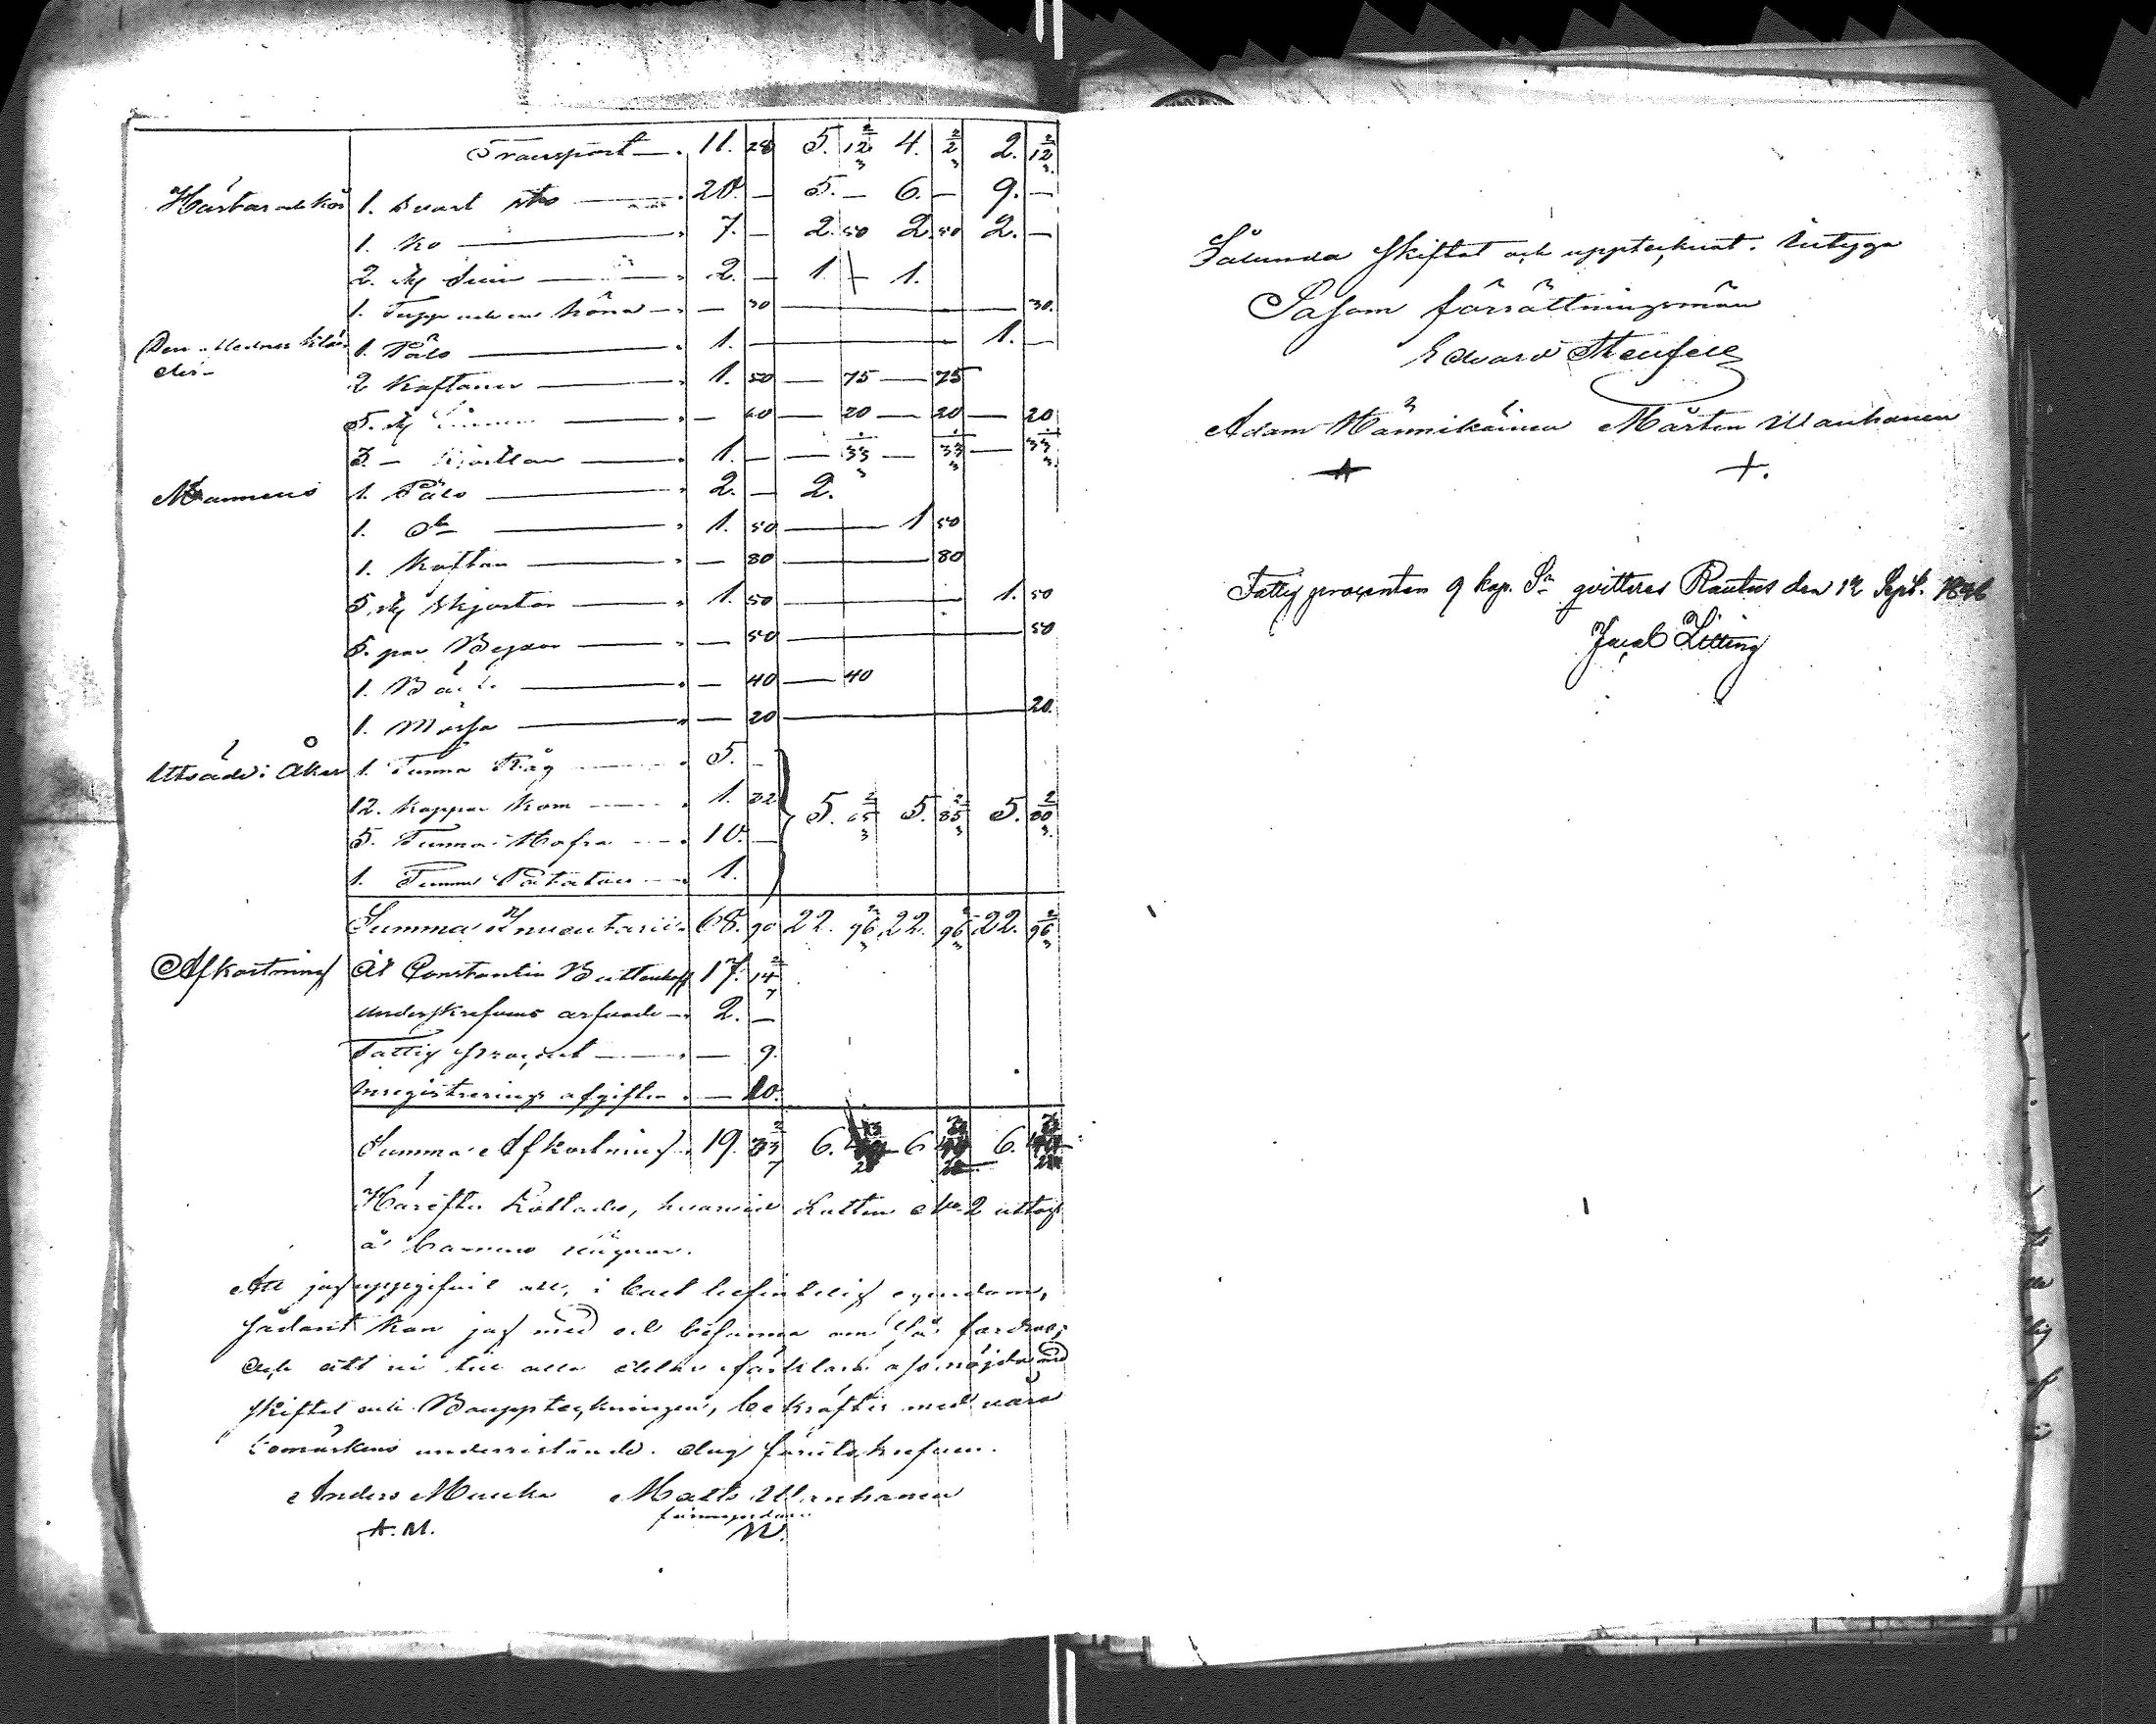 Transport 11. 28 5. 12 2/3 4. 2 2/3 2. 12 2/3
Hästar och kör 1. svart sto 20. — 5. — 6. — 9. —
1. Ko 7. — 2. 50 2. 50 2. —
2. st Svin 2. — 1. 1.
1. Tupp och en höna — 30 — 30.
Den aflednes kläder 1. Päls 1. — 1. —
2 Kaftaner 1. 50 — 75 — 75
5. st — 60 — 20 — 20 — 20
3. — Kjortlar 1. — — 33 1/3 — 33 1/3 — 33 1/3
Mannens 1. Päls 2. — 2.
1. do 1. 50 — 1 50
1. Kaftan — 80 — 80
5. st Skjortor 1. 50 — 1. 50
5. par Byxor — 50 — 50
1. — 40 — 40
1. Mössa — 20 — 20.
Utsäde i Åker 1. Tunna Råg 5. —
12. Kappar Korn 1. 5. 2/3 5. 2/3 5. 2/3
5. Tunnor Hafra 10. —
1. Tunna Potatoes 1.
Summa Inventarii 68. 90 22. 96 2/3 22. 96 2/3 22. 96 2/3
Afkortning Åt Constantin 17. 14 2/7
underskrefvens arfvode 2. —
Fattig procent — 9.
Inregistrerings afgiften — 10.
Summa Afkortning 19. 33 2/7 6. 6 6.
Härefter Lottades, hvarvid Lotten No 2 uttogs
å barnens vägnar.
Att jag uppgifvit allt, i boet befinteligt egendom,
sådant kan jag med ed besanna om så fordras;
och att vi till alla delar förklara oss nöjda med
skiftet och Bouppteckningen, bekräftes med våra
bomärkens underristande. dag förutskrefven.
Anders Mats Wanhanen
förmyndare
A. M. W.
Sålunda skiftat och upptecknat. Intyga
Såsom förrättningsmän
Edvard
Adam Hännikäinen Mårten Wanhanen
+ +.
Fattig procenten 9 kop. Sr qvitteras Rautus den 12 Sept. 1846
Jacob